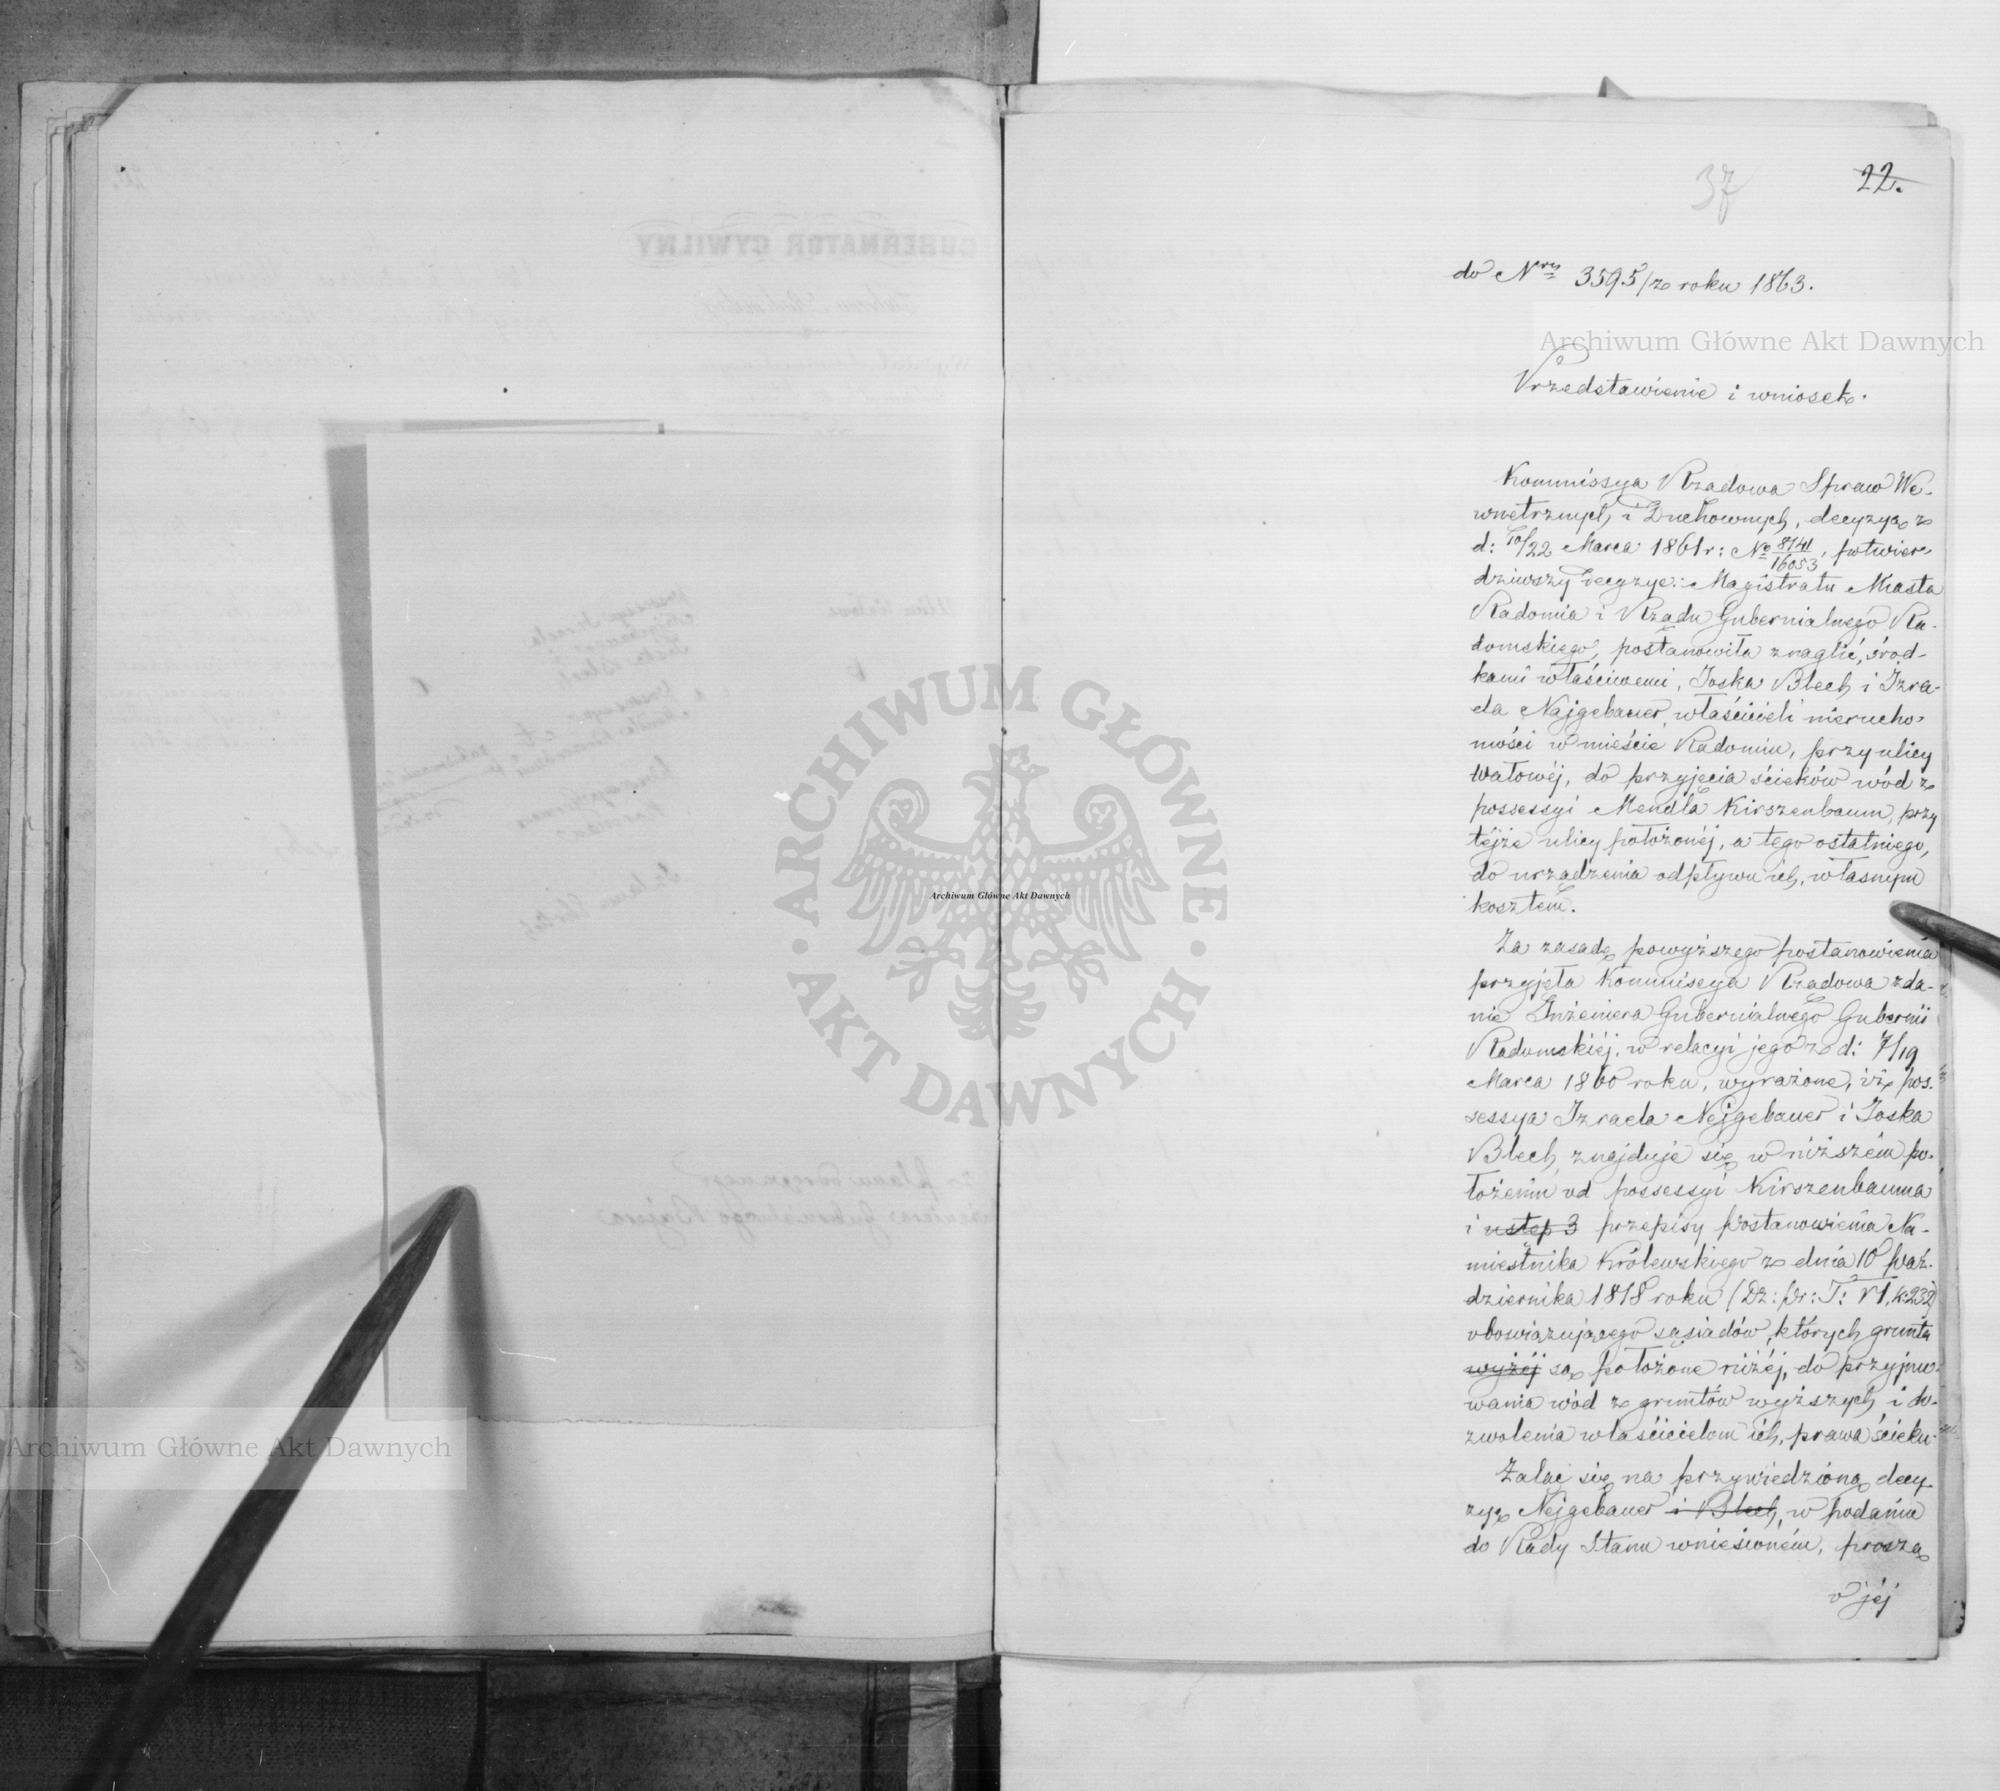 37
22.
do Nru 3595/z roku 1863.
Przedstawienie i wniosek.
Kommissya Rządowa Spraw We-
wnętrznych i Duchownych, decyzyą z
d: 10/22 Marca 1861 r: No 8741/16053, potwier-
dziwszy decyzye: Magistratu Miasta
Radomia i Rządu Gubernialnego Ra-
domskiego, postanowiła znaglić, środ-
kami właściwemi, Joska Blech i Izra-
ela Najgebauer, właścicieli nierucho-
mości w mieście Radomiu, przy ulicy
Wałowéj, do przyjęcia ścieków wód z
possessyi Mendla Kirszenbaum, przy
téjże ulicy położonéj, a tego ostatniego,
do urządzenia odpływu ich, własnym
kosztem.
Za zasadę powyższego postanowienia
przyjęła Kommissya Rządowa zda-
nie Inżeniera Gubernialnego Gubernii
Radomskiéj, w relacyi jego z d: 7/19
Marca 1860 roku, wyrażone, iż pos-
sessya Izraela Nejgebauer i Joska
Blech znajduje się w niższém po-
łożeniu od possessyi Kirszenbauma
i ustęp 3 przepisy Postanowienia Na-
miestnika Królewskiego z dnia 10 Paź-
dziernika 1818 roku (Dz: Pr: T: VI, k: 232)
obowiązującego sąsiadów, których grunta
wyżéj są położone niżéj, do przyjmo-
wania wód z gruntów wyższych, i do-
zwolenia właścicielom ich, prawa ścieku.
Żaląc się na przywiedzioną decy-
zyę Nejgebauer i Blech, w podaniu
do Rady Stanu wniesioném, proszą
o jéj
Archiwum Główne Akt Dawnych
Archiwum Główne Akt Dawnych
Archiwum Główne Akt Dawnych
ARCHIWUM GŁÓWNE
AKT DAWNYCH
GUBERNATOR CYWILNY